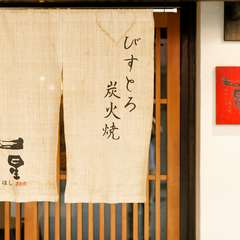 びすとろ
炭火焼
一星
ほし